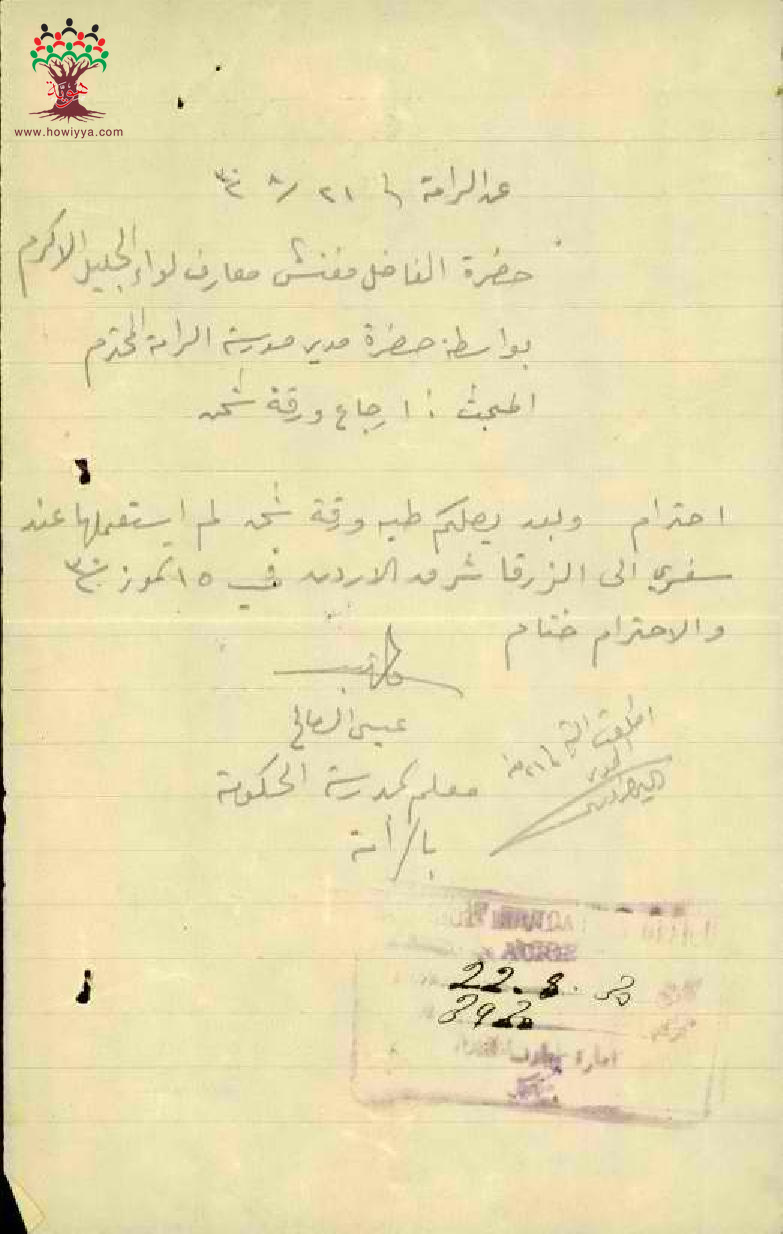 هوية
www.howiyya.com
عن الرامة في ٢١ / ٨
حضرة الفاضل مفتش معارف لواء الجليل الاكرم
بواسطة حضرة مدير مدرسة الرامة المحترم
المبحث : ارجاع ورقة شحن
احترام وبعد يصلكم طيه ورقة شحن لم استعملها عند
سفري الى الزرقا شرق الاردن في ١٥ تموز
والاحترام ختام
عيسى الصالح
معلم بمدرسة الحكومة
بالرامة
اطلعت
المدير
ACRE
22.8.
ادارة معارف
عكا